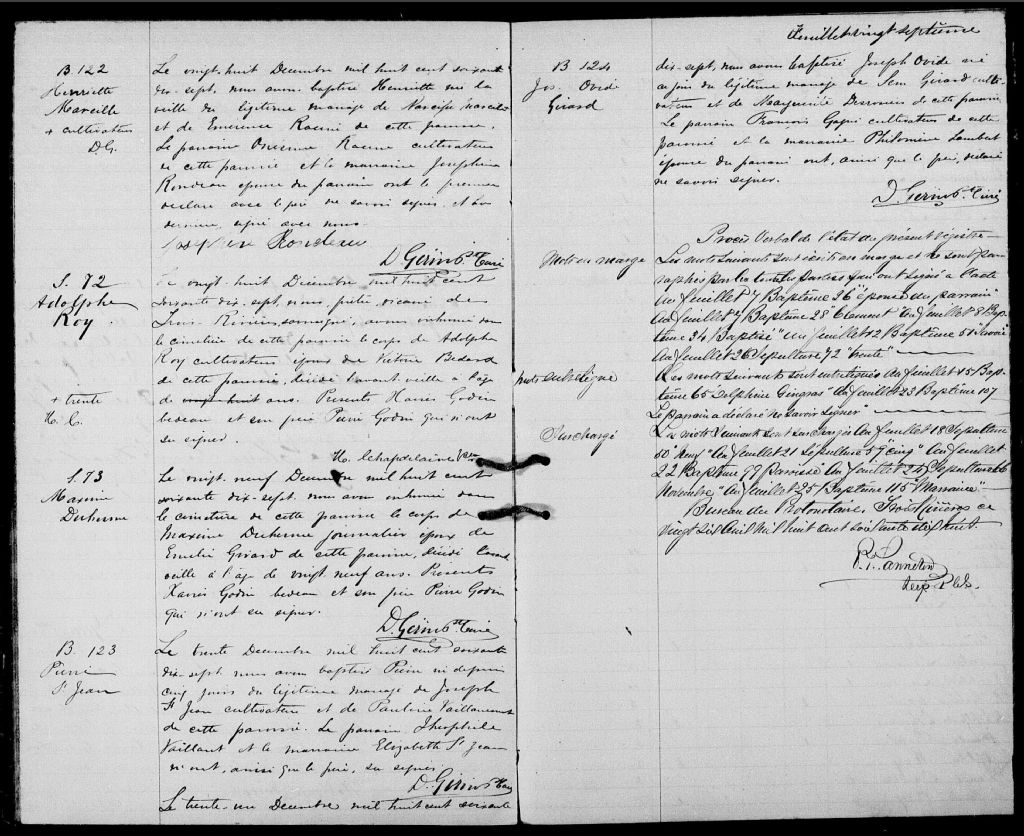 B. 122
Henriette
Marveille
+ cultivateur
D.G.
Le vingt-huit Décembre mil huit cent soixante
dix-sept, nous avons baptisé Henriette née la
veille du légitime mariage de Narcisse
et de Emerence Racine de cette paroisse.
Le parrain Onésime Racine cultivateur
de cette paroisse et la marraine Josephine
Rondeau épouse du parrain ont le premier
déclaré avec le père ne savoir signer. et la
dernière, signé avec nous.
Josephine Rondeau
D. Gérin Ptre Curé
S. 72
Adolphe
Roy
+ trente
H. C.
Le vingt-huit Décembre mil huit cent
soixante dix-sept, nous prêtre, vicaire de
Trois Rivières soussigné, avons inhumé dans
le cimetière de cette paroisse le corps de Adolphe
Roy cultivateur, époux de Victoire Bedard
de cette paroisse, décédé l'avant-veille à l'âge
de vingt-huit ans. Présents Xavier Godin
bedeau et son père Pierre Godin qui n'ont
su signer.
H. Chapdelaine Ptre
S. 73
Maxime
Duhaime
Le vingt-neuf Décembre mil huit cent
soixante dix-sept, nous avons inhumé dans
le cimetière de cette paroisse le corps de
Maxime Duhaime journalier époux de
Emélie Girard de cette paroisse, décédé l'avant
veille à l'âge de vingt-neuf ans. Présents
Xavier Godin bedeau et son père Pierre Godin
qui n'ont su signer.
D. Gérin Ptre Curé
B. 123
Pierre
St Jean
Le trente Décembre mil huit cent soixante
dix-sept nous avons baptisé Pierre né depuis
cinq jours du légitime mariage de Joseph
St Jean cultivateur et de Pauline Vaillancourt
de cette paroisse. Le parrain Théophile
Vaillant et la marraine Elizabeth St Jean
n'ont, ainsi que le père, su signer.
D. Gérin Ptre Curé
Le trente-un Décembre mil huit cent soixante
Feuillet vingt septième
B 124
Jos. Ovide
Girard
dix-sept, nous avons baptisé Joseph Ovide né
ce jour du légitime mariage de Girard culti-
vateur et de Marguerite de cette paroisse.
Le parrain François cultivateur de cette
paroisse et la marraine Philomène Lambert
épouse du parrain ont, ainsi que le père, déclaré
ne savoir signer.
D. Gérin Ptre Curé
Procès Verbal de l'état du présent régistre
Mots en marge
Les mots suivants sont écrits en marge et ne sont para
raphés par les qui ont signé à l'acte
Au feuillet 7 Baptême 26 "épouse du parrain"
Au feuillet Baptême 28 Clement Au feuillet 8 Bap-
tême 34 "Baptisé" Au feuillet 12 Baptême 51 "Savoir"
Au feuillet 26 Sepulture 72 "trente"
Mots
Les mots suivants sont Au feuillet 15 Bap-
tême 65 Delphine Gingras" Au feuillet 23 Baptême 107
Le parrain a déclaré ne savoir signer"
Surchargé
Les mots suivants sont surchargés Au feuillet 18 Sepulture
50 "Neuf" Au feuillet 21 Sepulture 57 "cinq" Au feuillet
22 Baptême 99 Paroisse Au feuillet 24 Sepulture 66
Novembre" Au feuillet 25 Baptême 115 "Marraine"
Bureau du Protonotaire. Trois Rivières ce
vingt six Avril Mil huit cent soixante dix huit.
Panneton
Dep. P.